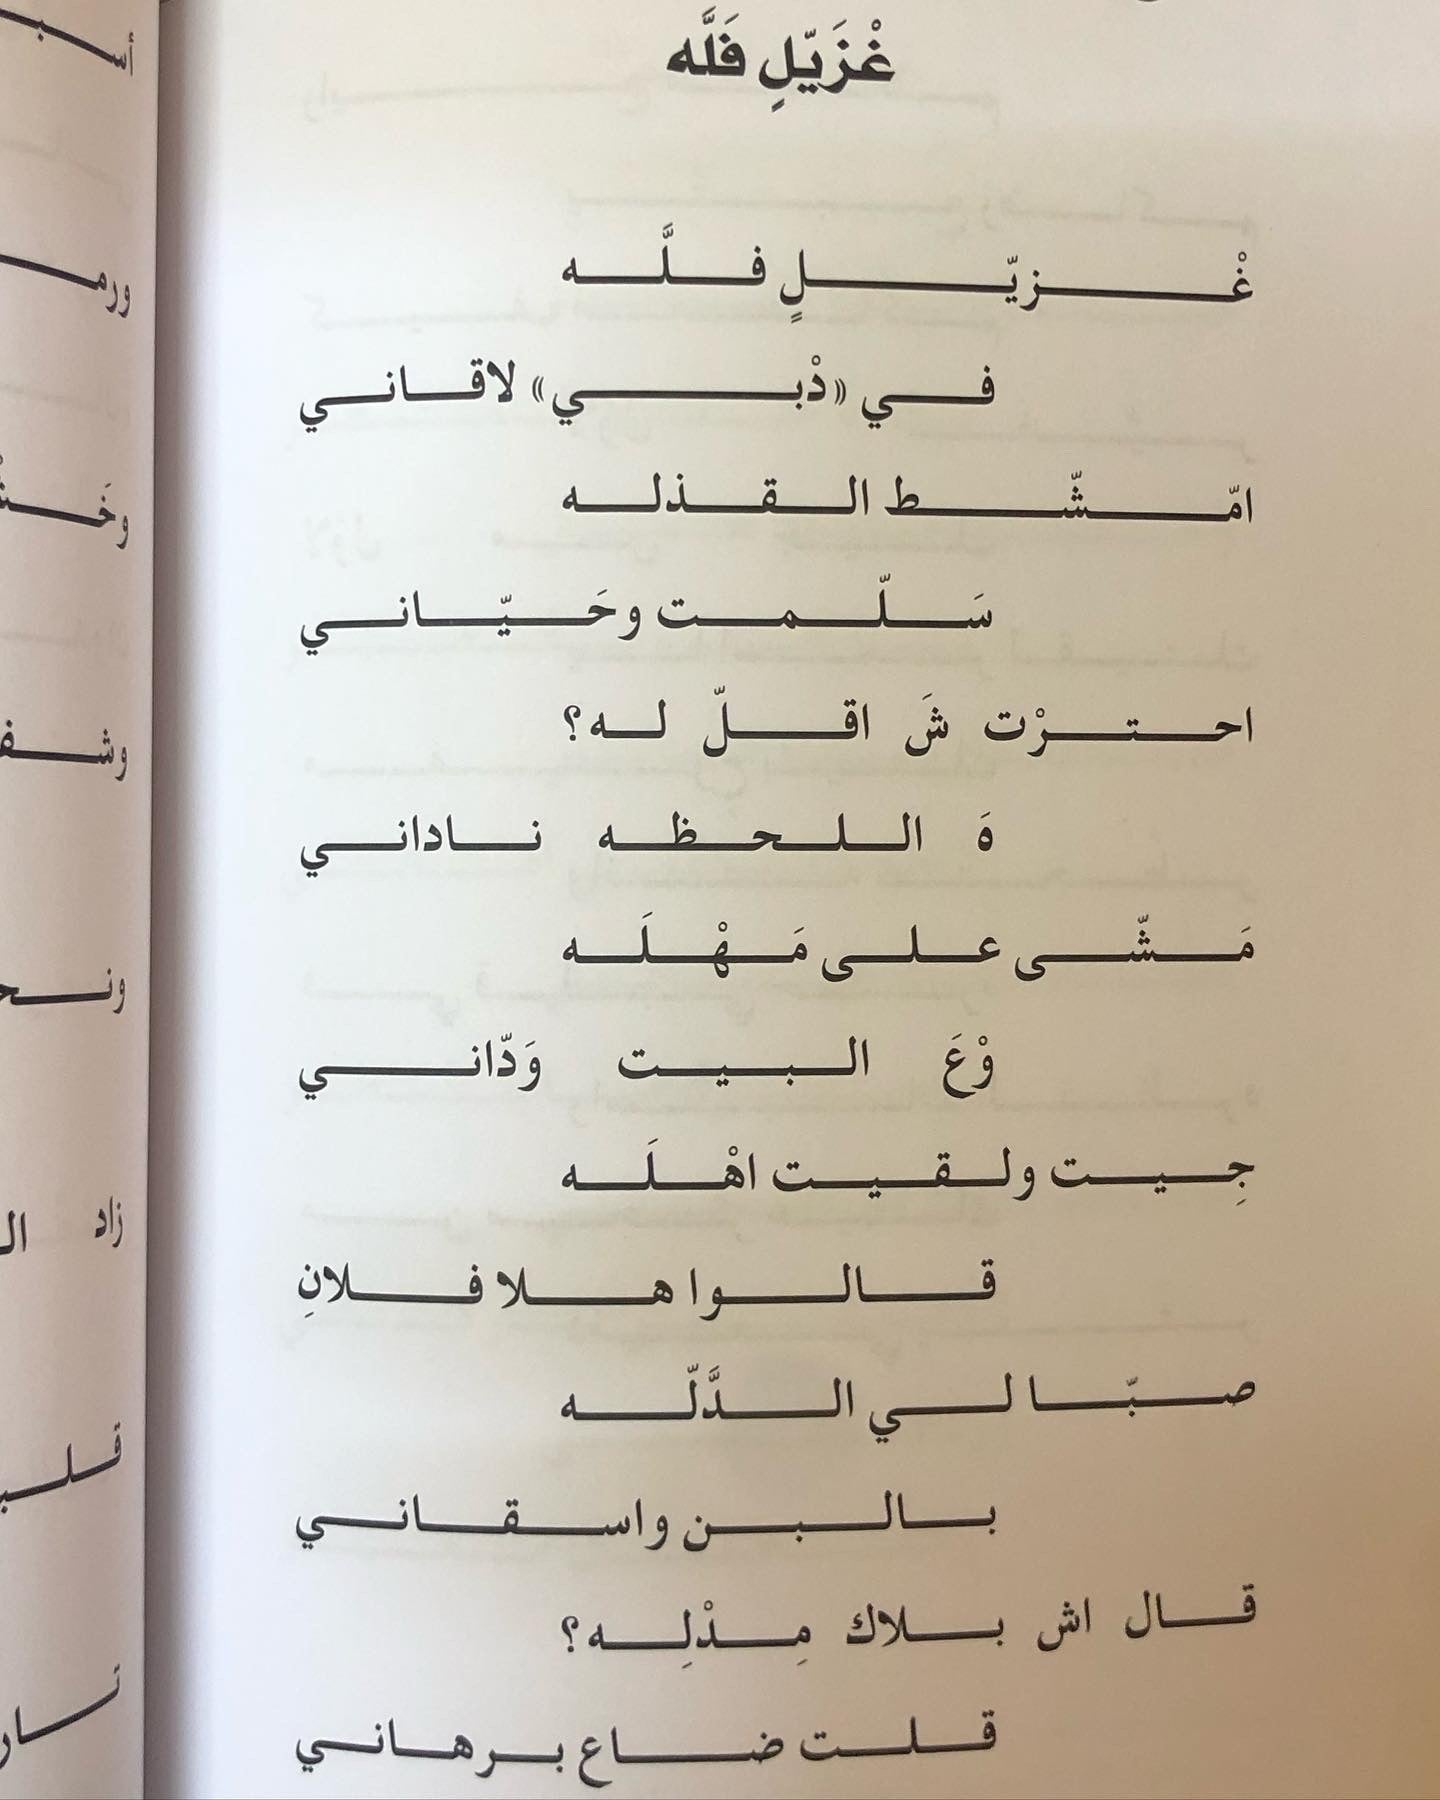 غْزَيّلِ فَلَّه
غْزيّلٍ فلَّه
في «دْبي» لاقاني
امّشّط القذله
سَلّمت وحَيّاني
احترْت شَ اقلّ له؟
هَ اللحظه ناداني
مَشّى على مَهْلَه
وْعَ البيت وَدّاني
جِيت ولقيت اهْلَه
قالوا هلا فلانِ
صبّا لي الدَّلّه
بالبن واسقاني
قال اش بلاك مِدْلِه؟
قلت ضاع برهاني